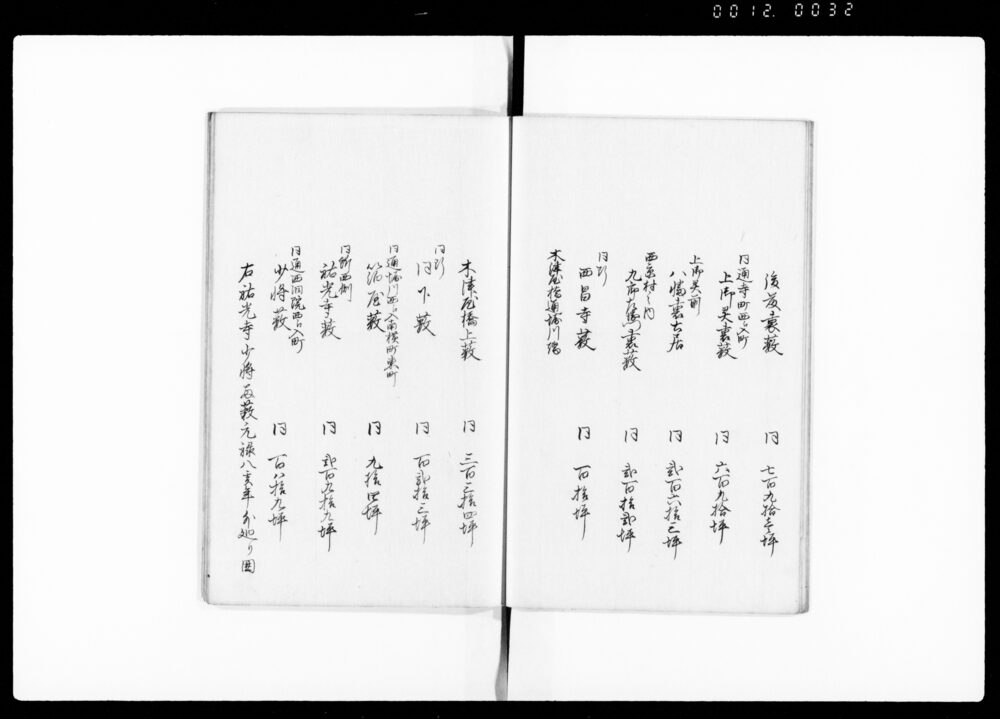 0012. 0032
後藪裏藪 同 七百九拾三坪
同通寺町西へ入町
上御異裏藪 同 六百九拾坪
上御異前
八幡裏古居 同 弐百六拾三坪
西京村之内
九郎左衛門裏藪 同 弐百拾弐坪
同断
西昌寺藪 同 百拾坪
木津屋橋通堀川端
木津屋橋上藪 同 三百三拾四坪
同断
同下藪 同 百弐拾三坪
同通堀川西へ入南横町東町
笹屋藪 同 九拾四坪
同断西側
祐光寺藪 同 弐百九拾九坪
同通西洞院西へ入町
少将藪 同 百八拾九坪
右祐光寺少将両藪元禄八亥年外廻り囲